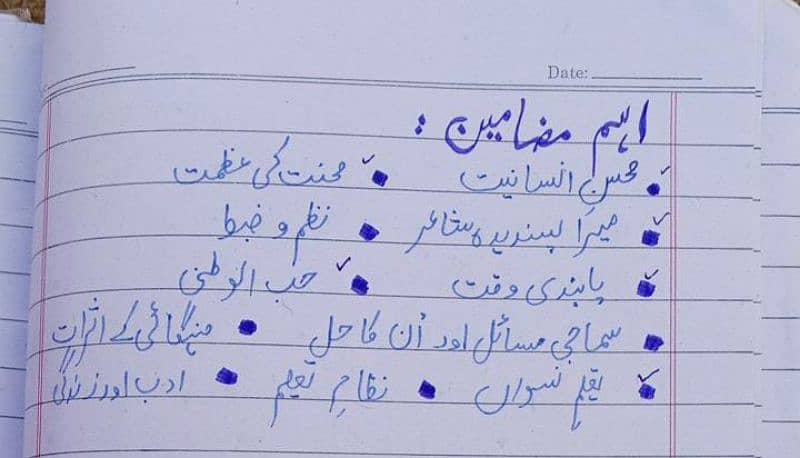 Date:
اہم مضامین :
• محسنِ انسانیت • محنت کی عظمت
• میرا پسندیدہ شاعر • نظم و ضبط
• پابندی وقت • حب الوطنی
• سماجی مسائل اور اُن کا حل • مہنگائی کے اثرات
• تعلیم نسواں • نظامِ تعلیم • ادب اور زندگی